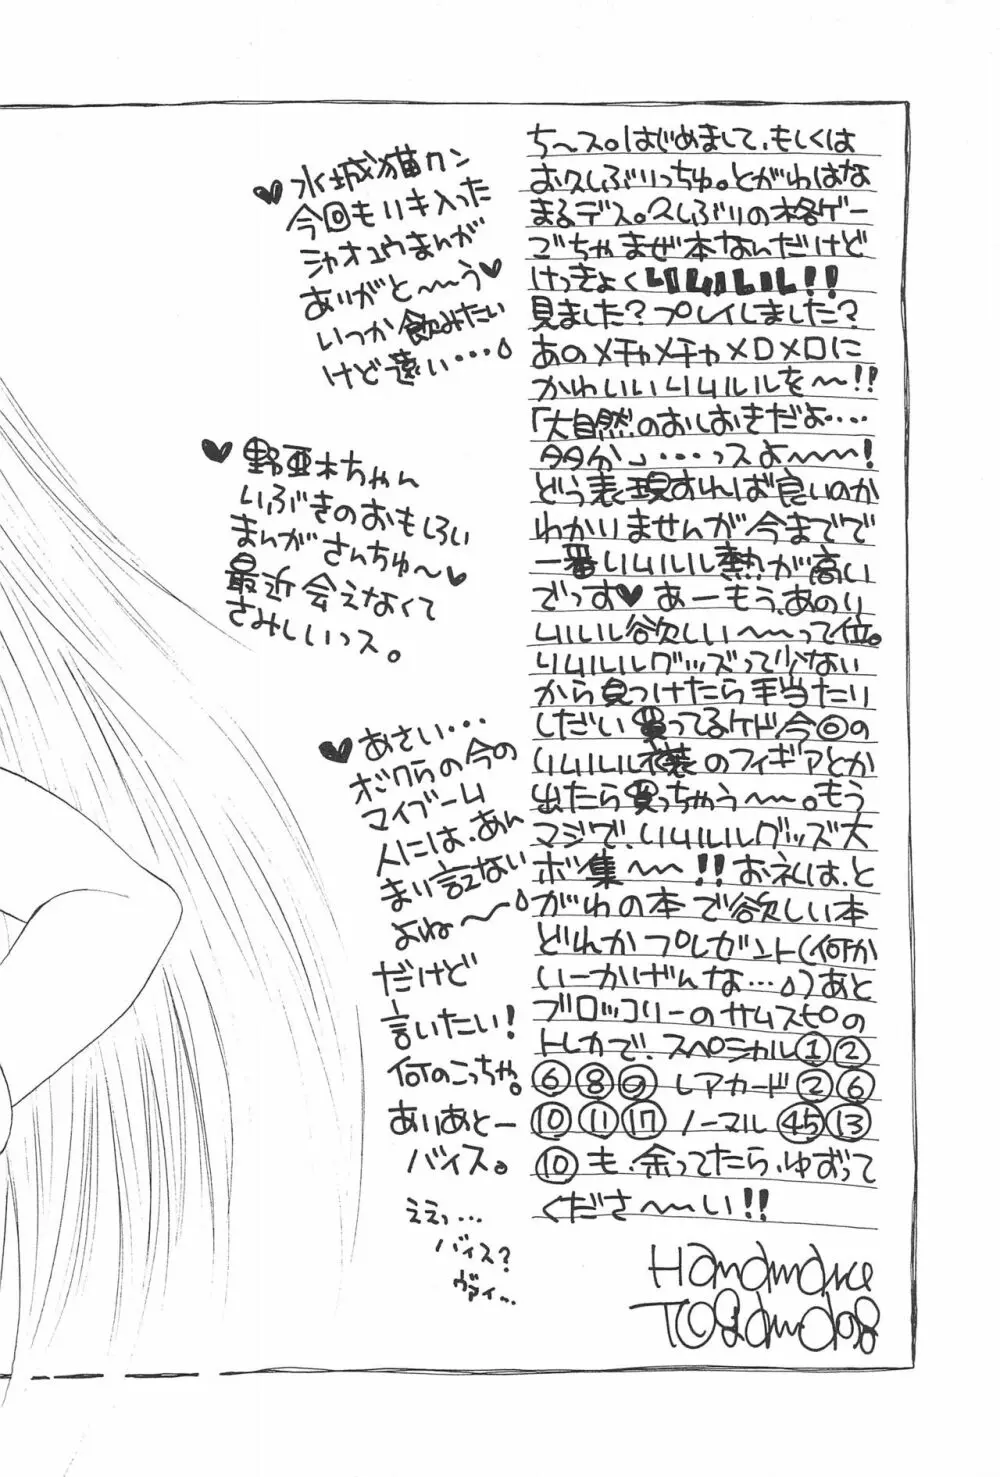 ち〜ス。はじめまして、もしくは
お久しぶりっちゅ。とがわはな
まるデス。久しぶりの格ゲー
ごちゃまぜ本なんだけど
けっきょくリムルル!!
見ました?プレイしました?
あのメチャメチャメロメロに
かわいいリムルルを〜!!
「大自然のおしおきだよ・・・・
多分」・・・・っスよ〜〜〜!
どう表現すれば良いのか
わかりませんが今までで
一番リムルル熱が高い
でっす♥あーもう、あのリ
ムルル欲しい〜〜って位。
リムルルグッズって少ない
から見つけたら手当たり
しだい買ってるケド今回の
リムルル衣装のフィギアとか
出たら買っちゃう〜〜。もう
マジで、リムルルグッズ大
ボ集〜〜!!お礼は、と
がわの本で欲しい本
どれかプレゼント(何か
いーかげんな・・・)あと
ブロッコリーのサムスピの
トレカで、スペシャル①②
⑥⑧⑨レアカード②⑥
⑩⑪⑰ノーマル㊺⑬
⑩も、余ってたら、ゆずって
くださ〜〜い!!
Handmaid
♥水城猫クン
今回もリキ入った
シャオユウまんが
ありがと〜〜う♥
いつか飲みたい
けど遠い・・・
♥野亜木ちゃん
いぶきのおもしろい
まんがさんちゅ〜♥
最近会えなくて
さみしいっス。
♥あさい・・・
ボクらの今の
マイブーム
人には、あん
まり言えない
よね〜〜
だけど
言いたい!
何のこっちゃ。
ありあとー
バイス。
ええっ・・・
バイス?
ヴァイ〜